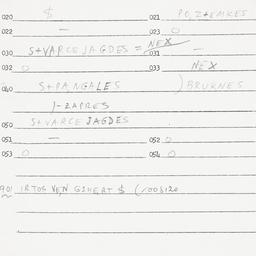 020 $ 021 PO, Z+EMKES
022 – 023 O
030 S+VARCE JAGDES = NEX 031 –
032 O 033 NEX
040 S+PANGALES ) BRUKNES
1-ZAPRES
050 S+VARCE JAGDES
051 – 052 O
053 O 054 O
901 IRTOS VEN GIHERT $ (/008120